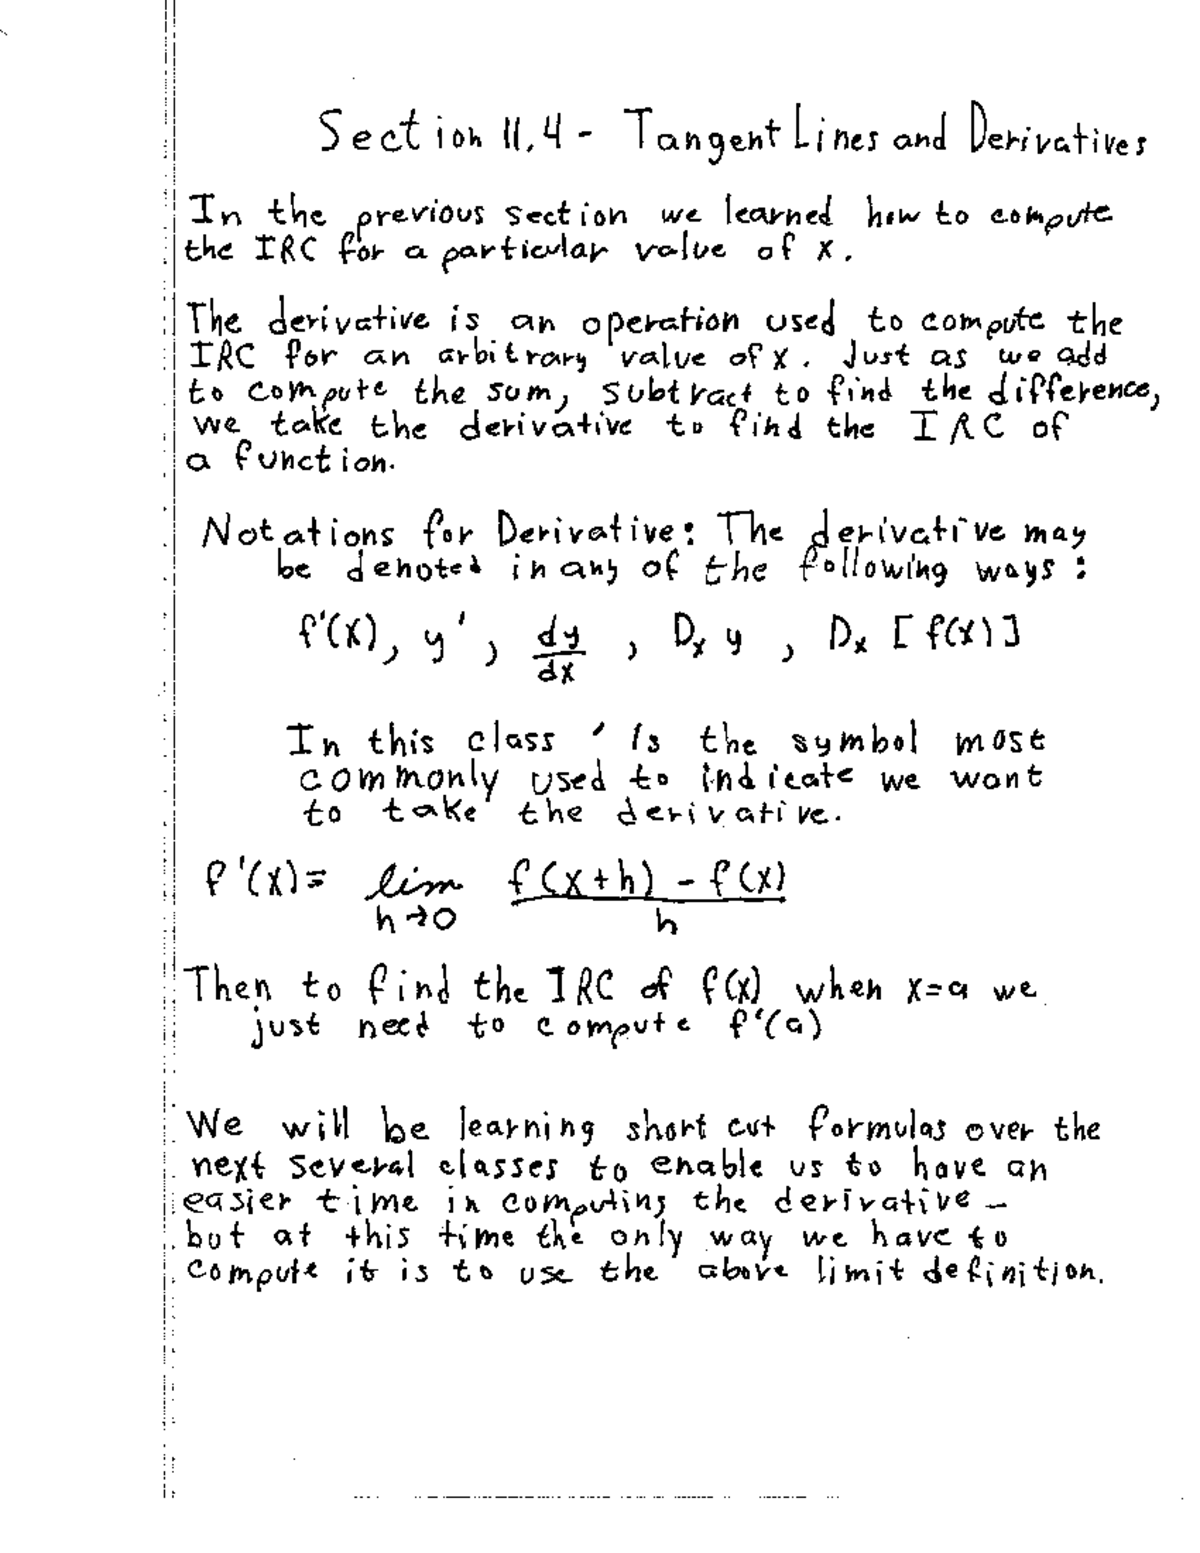 Section 11.4 - Tangent Lines and Derivatives
In the previous section we learned how to compute
the IRC for a particular value of x.
The derivative is an operation used to compute the
IRC for an arbitrary value of x. Just as we add
to compute the sum, subtract to find the difference,
we take the derivative to find the IRC of
a function.
Notations for Derivative: The derivative may
be denoted in any of the following ways:
f'(x), y', dy/dx, Dx y, Dx [f(x)]
In this class ' is the symbol most
commonly used to indicate we want
to take the derivative.
f'(x) = lim h→0 (f(x+h) - f(x))/h
Then to find the IRC of f(x) when x=a we
just need to compute f'(a)
We will be learning short cut formulas over the
next several classes to enable us to have an
easier time in computing the derivative –
but at this time the only way we have to
compute it is to use the above limit definition.